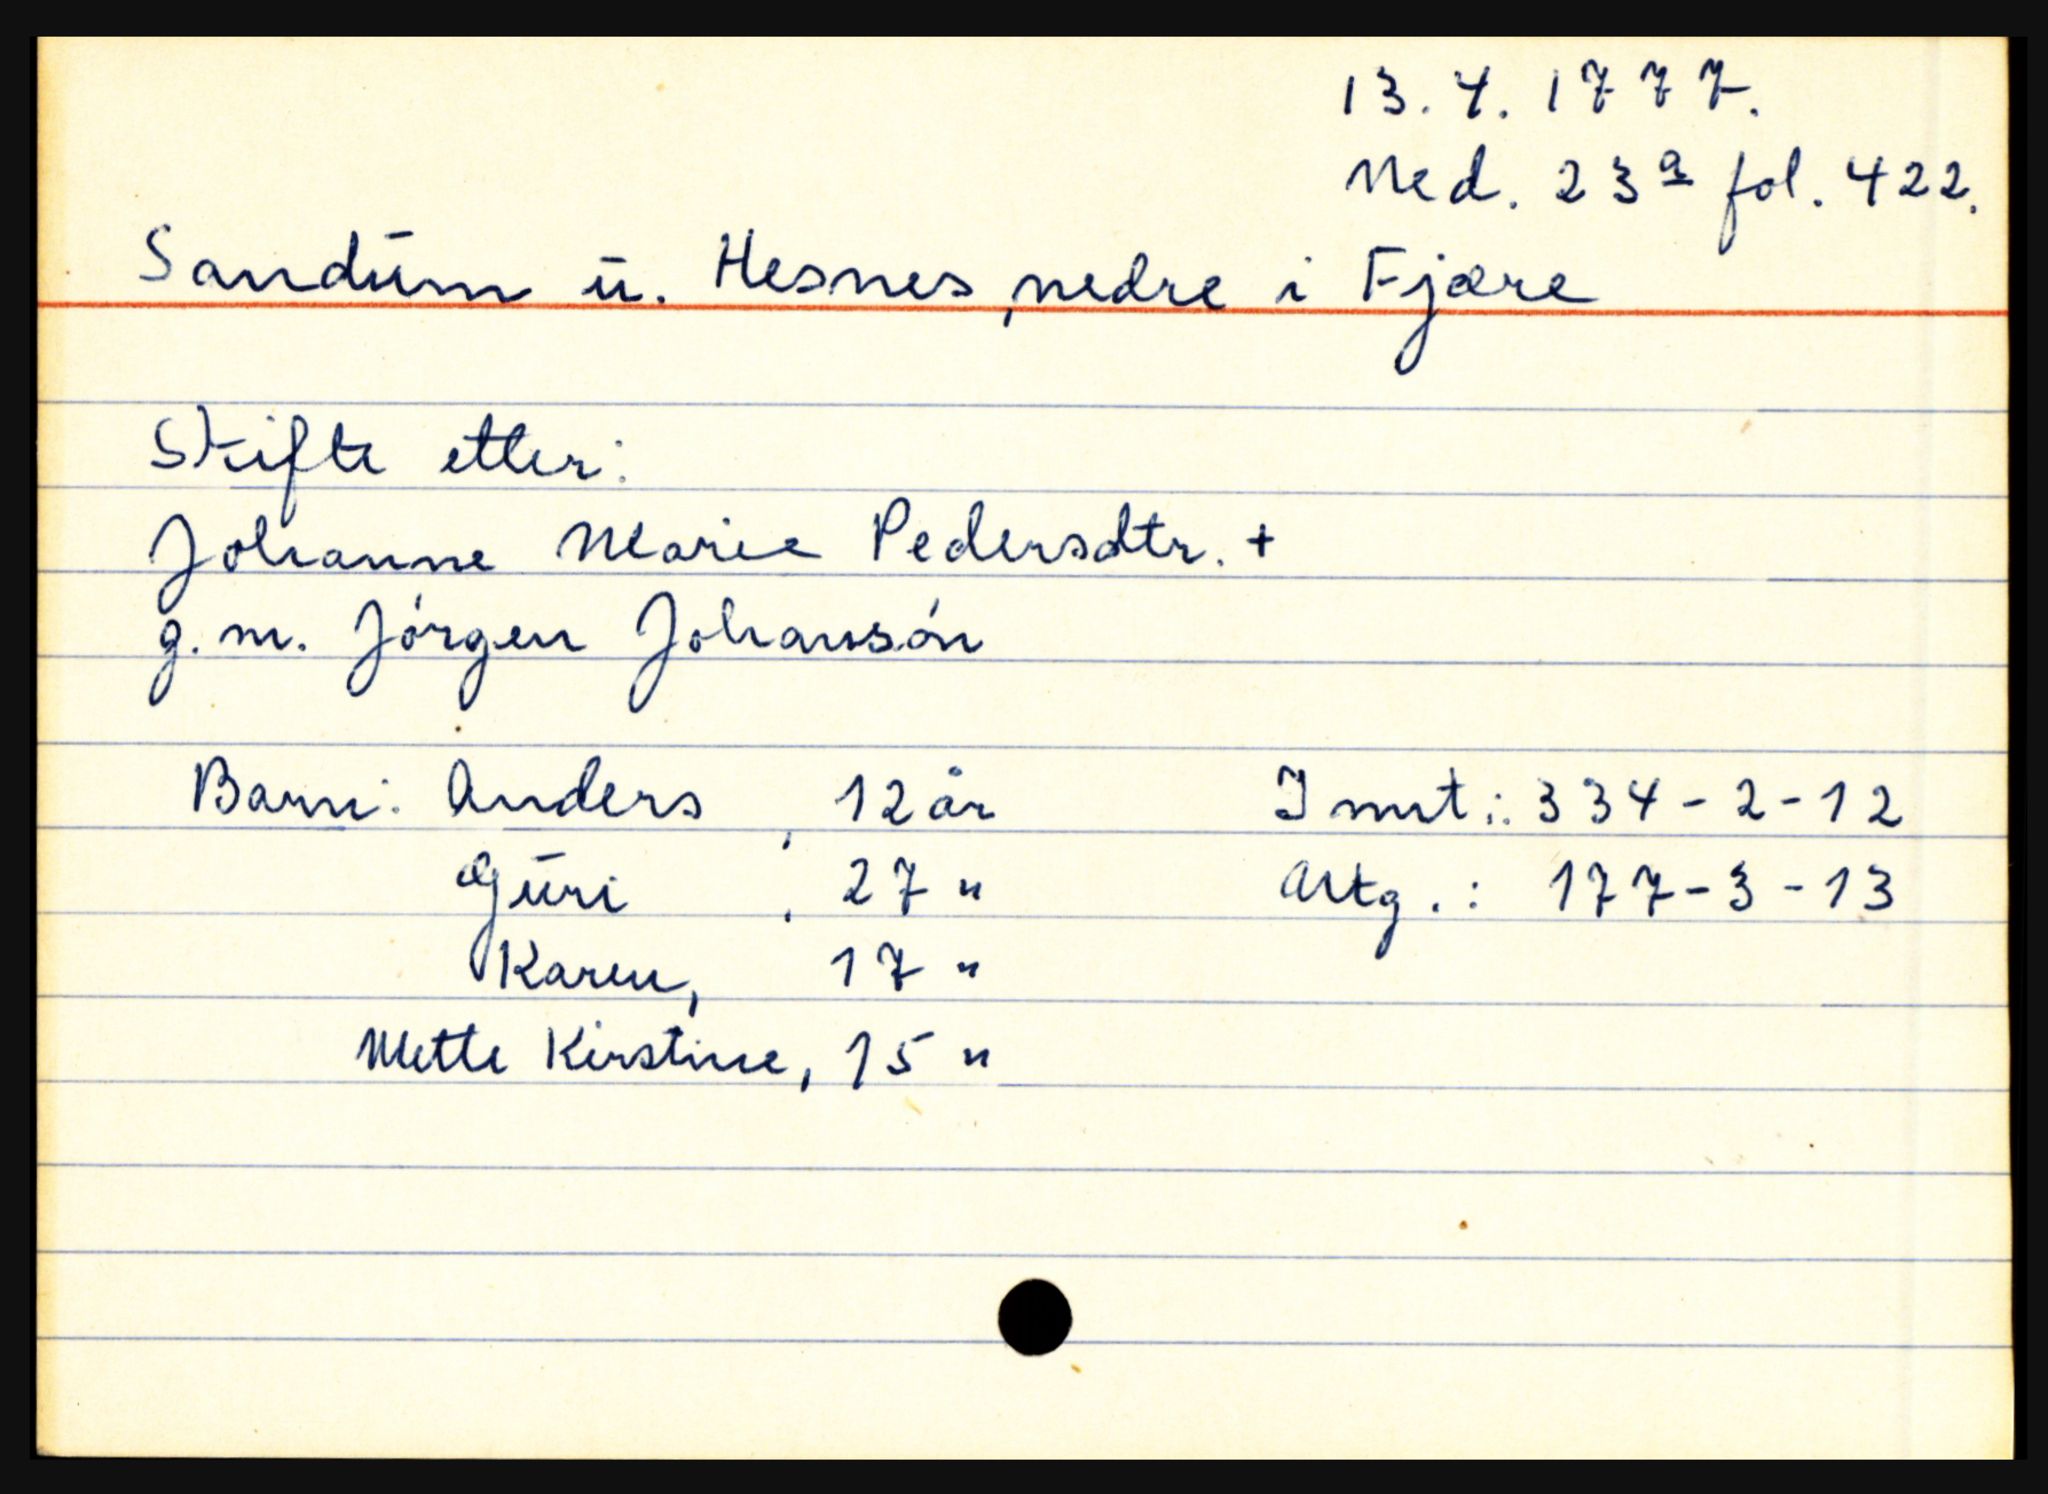 13.4.1777.
Ned. 23a fol. 422.
Sandum u. Hesnes, nedre i Fjære
Skifte etter:
Johanne Marie Pedersdtr. +
g.m. Jórgen Johanssón
Barn: Anders, 12 år Innt.: 334-2-12
Guri, 27 " Utg.: 177-3-13
Karen, 17 "
Mette Kirstine, 15 "